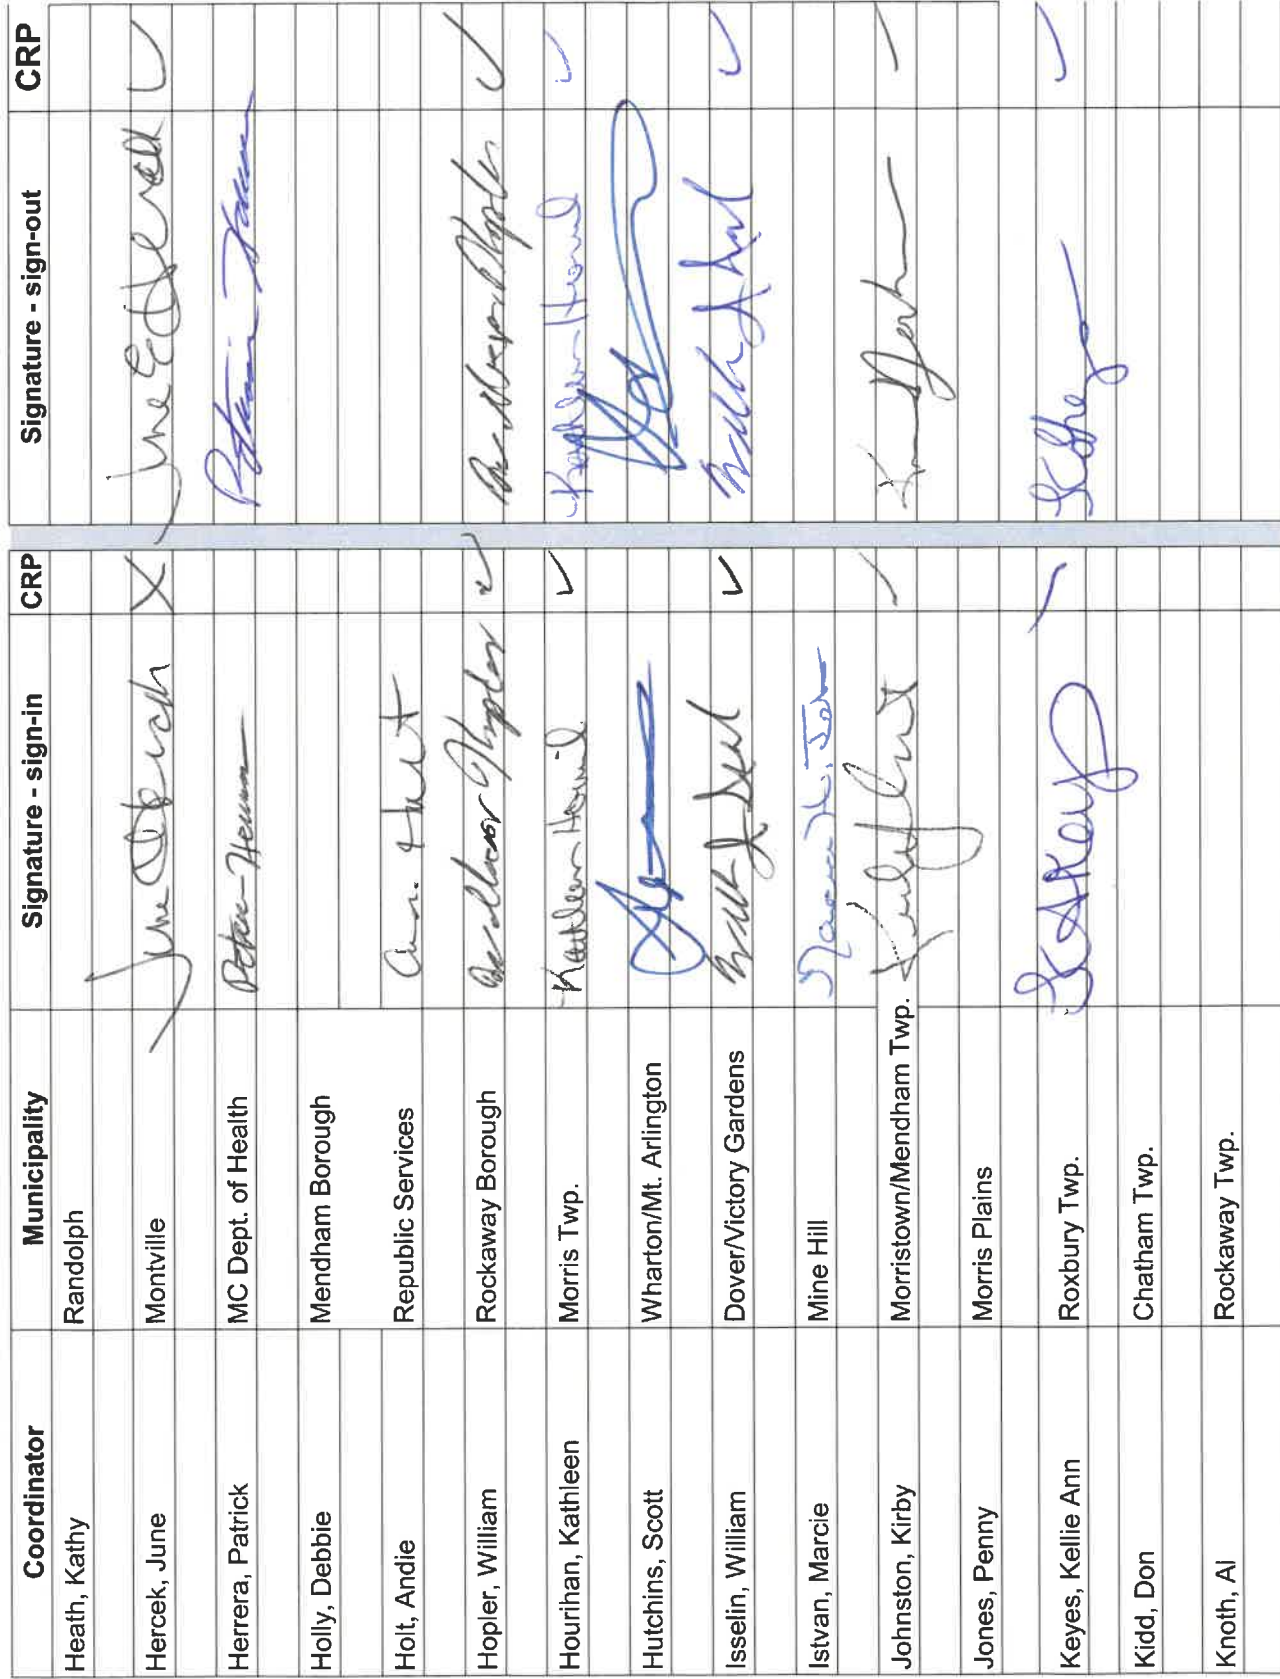 Coordinator Municipality Signature - sign-in CRP Signature - sign-out CRP
Heath, Kathy Randolph
Hercek, June Montville June Hercek X June E Hercek ✓
Herrera, Patrick MC Dept. of Health
Holly, Debbie Mendham Borough
Holt, Andie Republic Services
Hopler, William Rockaway Borough Hopler ✓ Hopler ✓
Hourihan, Kathleen Morris Twp. Kathleen ✓ Kathleen ✓
Hutchins, Scott Wharton/Mt. Arlington
Isselin, William Dover/Victory Gardens ✓ ✓
Istvan, Marcie Mine Hill
Johnston, Kirby Morristown/Mendham Twp.
Jones, Penny Morris Plains
Keyes, Kellie Ann Roxbury Twp. ✓
Kidd, Don Chatham Twp.
Knoth, Al Rockaway Twp.